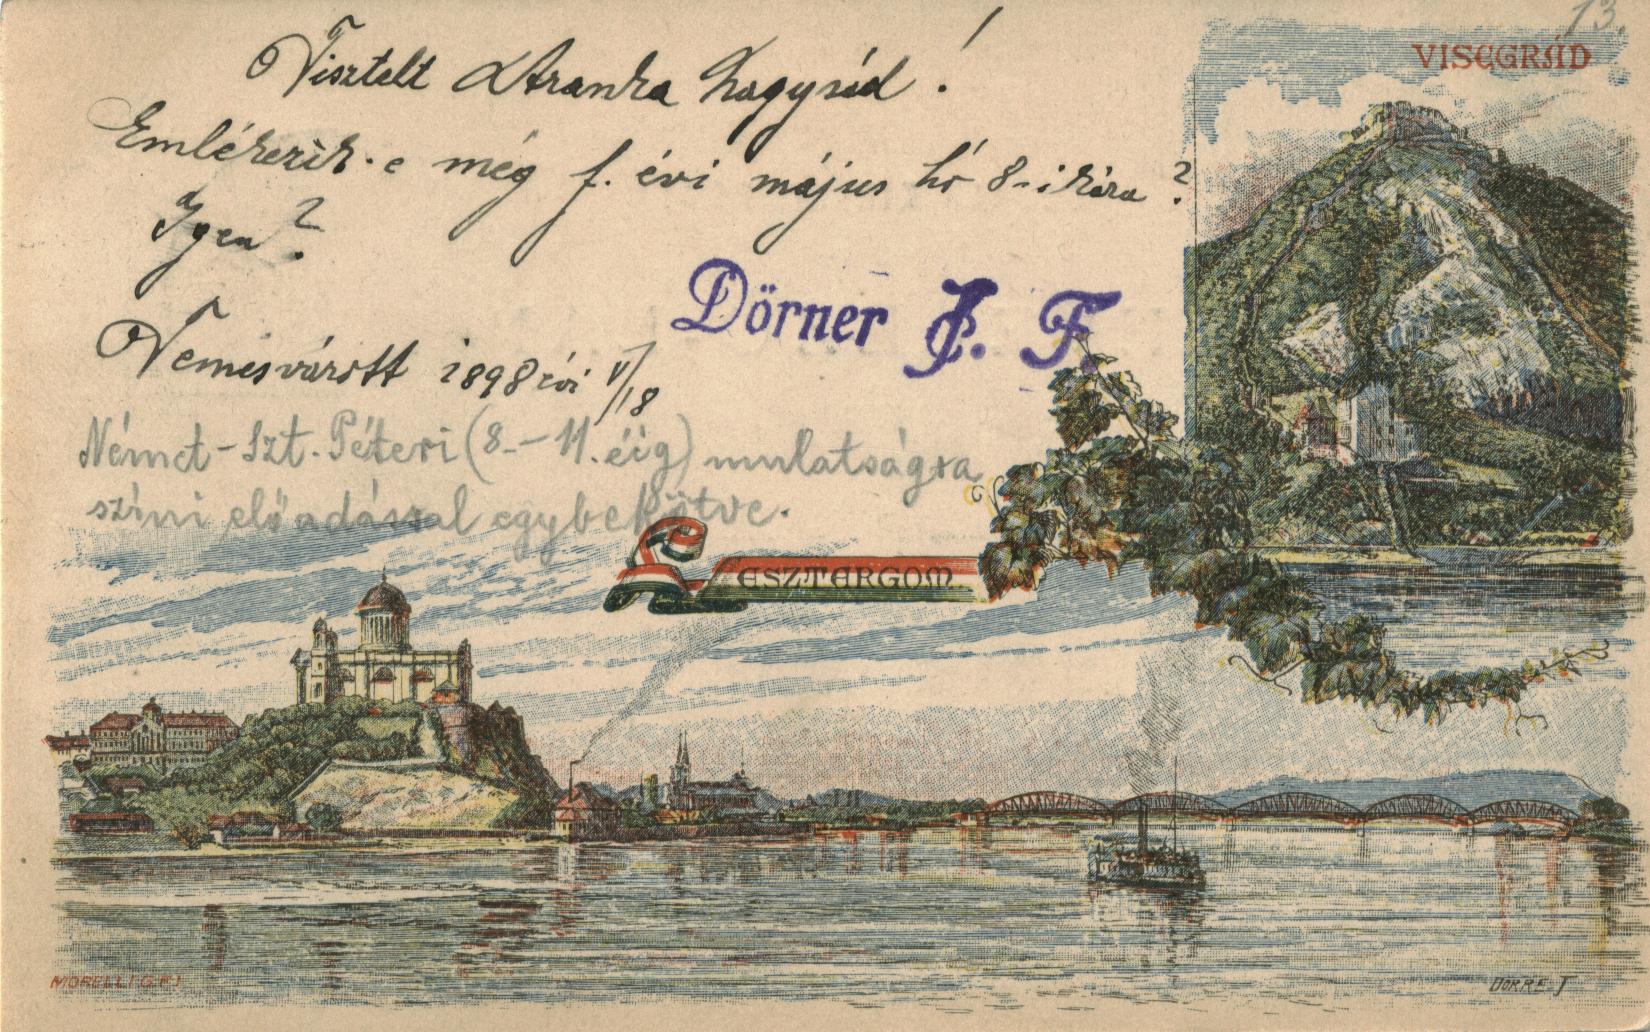 13.
VISEGRÁD
Tisztelt Aranka Nagysád!
Emlékezik-e még f. évi május hó 8-ikára?
Igen?
Dörner J. F.
Nemesvárott 1898 évi V/18
Német-Szt. Péteri (8.-11. éig) mulatságra
színi előadással egybekötve.
ESZTERGOM
MORELLI G. F.
DÖRRE T